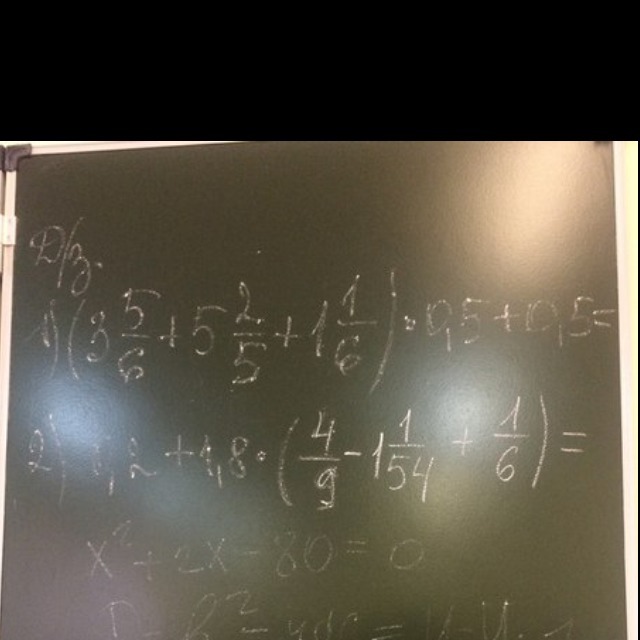 Д/з.
1) (3 5/6 + 5 2/5 + 1 1/6) · 0,5 + 0,5 =
2) 1,2 + 1,8 · (4/9 - 1 1/54 + 1/6) =
x² + 2x - 80 = 0